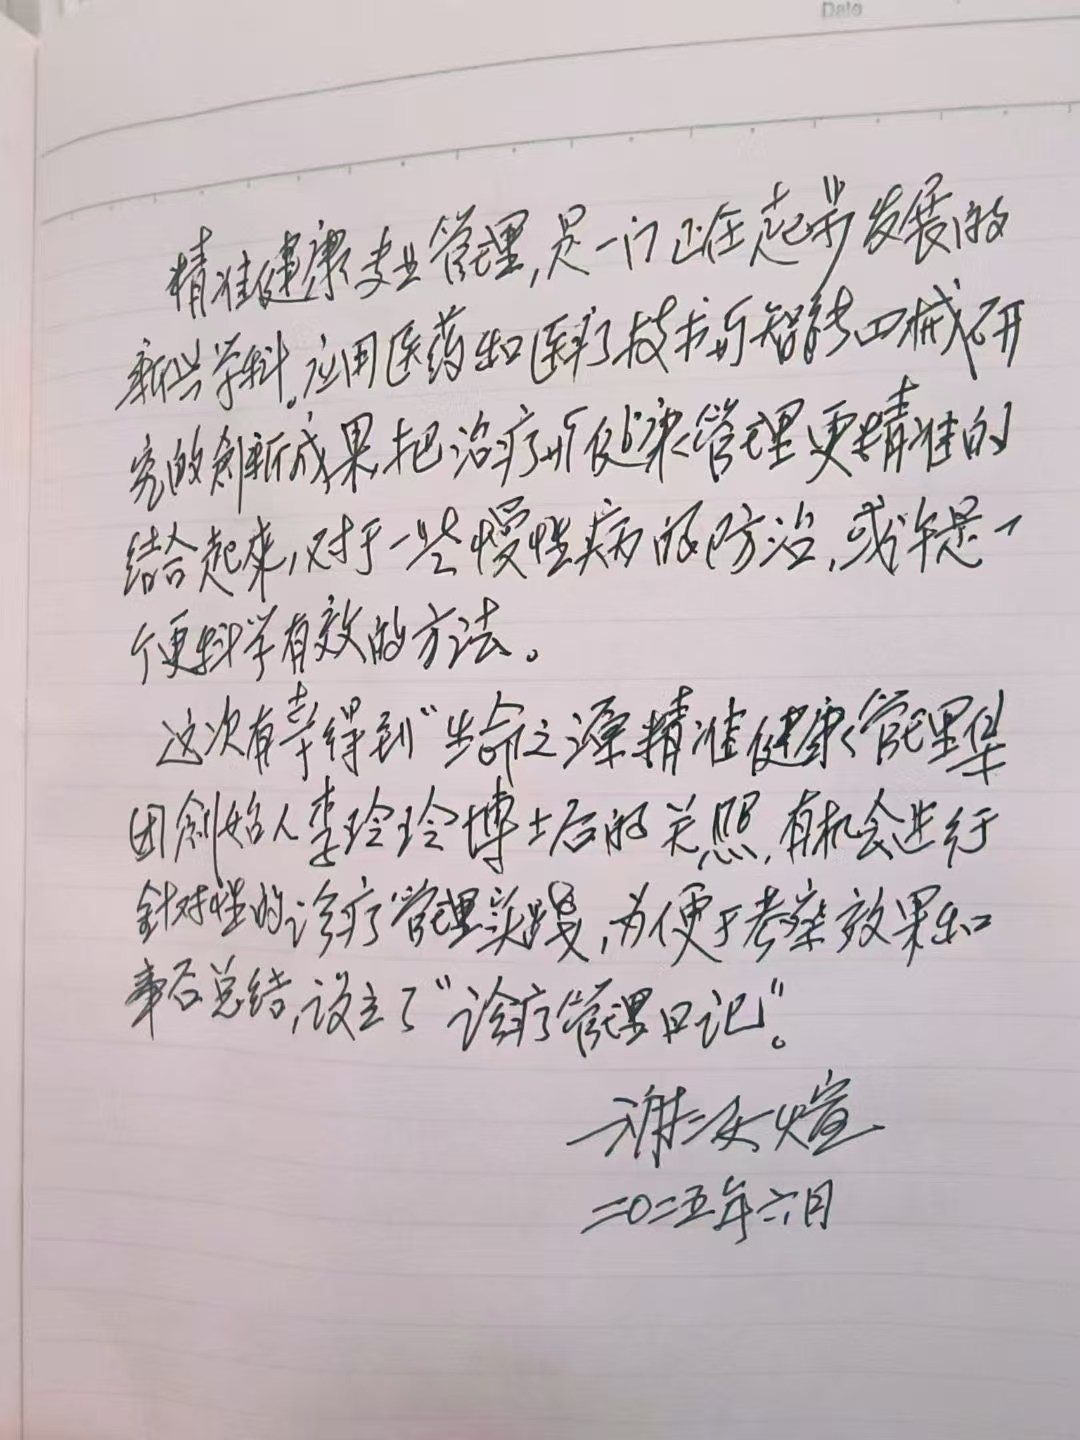 Date
精准健康专业管理,是一门正在起步发展的
新兴学科。应用医药和医疗技术与智能四械研
究的创新成果,把治疗与健康管理更精准的
结合起来,对于一些慢性病的防治,或许是一
个更科学有效的方法。
这次有幸得到“生命之源精准健康管理集
团创始人李玲玲博士后的关照,有机会进行
针对性的诊疗管理实践,为便于考察效果和
事后总结,设立了“诊疗管理日记”。
谢 煊
二〇二五年六月